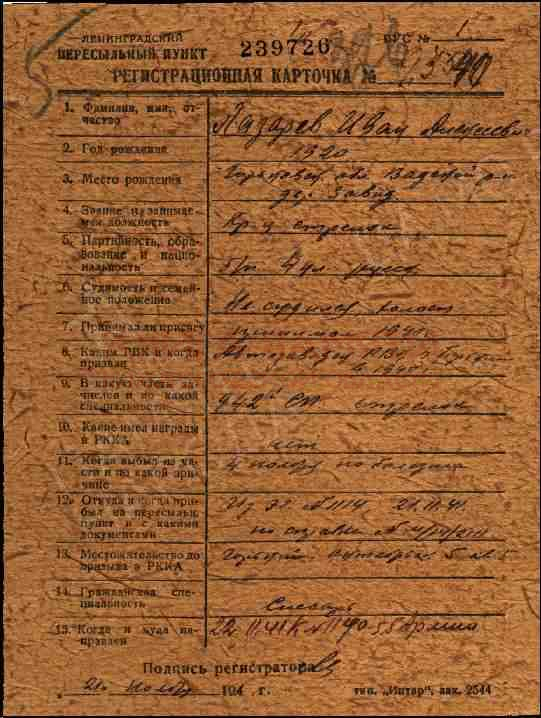 ЛЕНИНГРАДСКИЙ
ПЕРЕСЫЛЬНЫЙ ПУНКТ
239726
ВРС № 1
РЕГИСТРАЦИОННАЯ КАРТОЧКА №
1. Фамилия, имя, от-
чество
Лазарев Иван Алексеевич
2. Год рождения
1920
3. Место рождения
Горьковск обл. Вадской р-н
дер. Завид
4. Звание и занимае-
мая должность
Кр-ц стрелок
5. Партийность, обра-
зование и нацио-
нальность
б/п 7 кл. русск
6. Судимость и семей-
ное положение
Не судился холост
7. Принимал ли присягу
принимал 1940г.
8. Каким РВК и когда
призван
Автозаводск РВК г. Горький
в 1940г.
9. В какую часть за-
числен и по какой
специальности
942 СП стрелок
10. Какие имел награды
в РККА
нет
11. Когда выбыл из ча-
сти и по какой при-
чине
4 ноября по болезни
12. Откуда и когда при-
был на пересыльн.
пункт и с какими
документами
Из ЭГ № 1114 21.11.41.
по справке №
13. Местожительство до
призыва в РККА
Горький
14. Гражданская спе-
циальность
Слесарь
15. Когда и куда на-
правлен
22.11.41 55 Армия
Подпись регистратора
21. Ноября 194 г.
тип. „Интар", зак. 2544